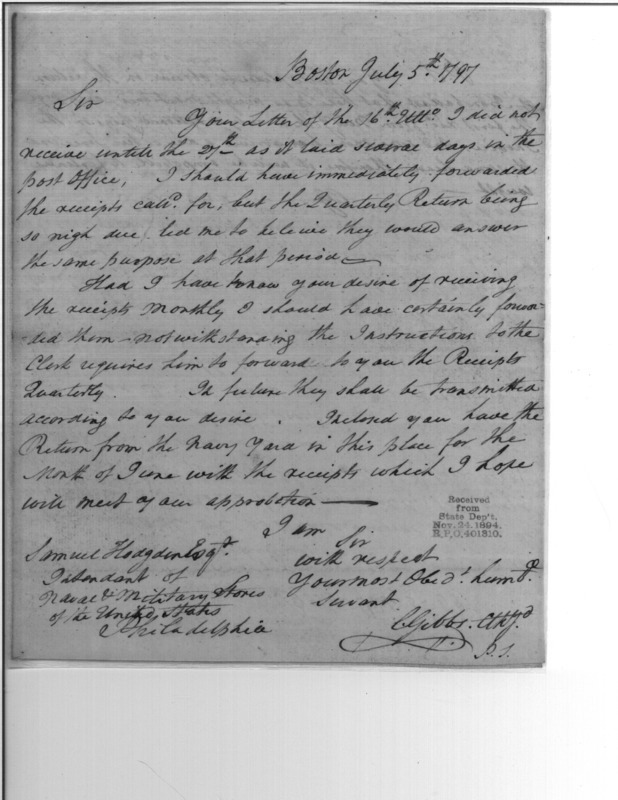 Boston July 5th. 1797
Sir
Your Letter of the 16th. Ulto. I did not
receive untill the 27th as it laid several days in the
post office, I should have immediately forwarded
the receipts calld. for, but the Quarterly Return being
so nigh due, led me to beleive they would answer
the same purpose at that period
Had I have know your desire of receiving
the receipts Monthly I should have certainly forwar-
ded them - notwithstanding the Instructions to the
Clerk requires him to forward to you the Receipts
Quarterly. In future they shall be transmitted
according to your desire. Inclosed you have the
Return from the Navy Yard in this place for the
Month of June with the receipts which I hope
will meet your approbation
I am
Sir
with respect
Your most Obedt. humbe.
Servant.
C Gibbs. Clk
Samuel Hodgdon Esqr.
Intendant of
Naval & Military Stores
of the United States
Philadelphia
Received
from
State Dep't.
Nov. 24. 1894.
R.P.O. 401310.